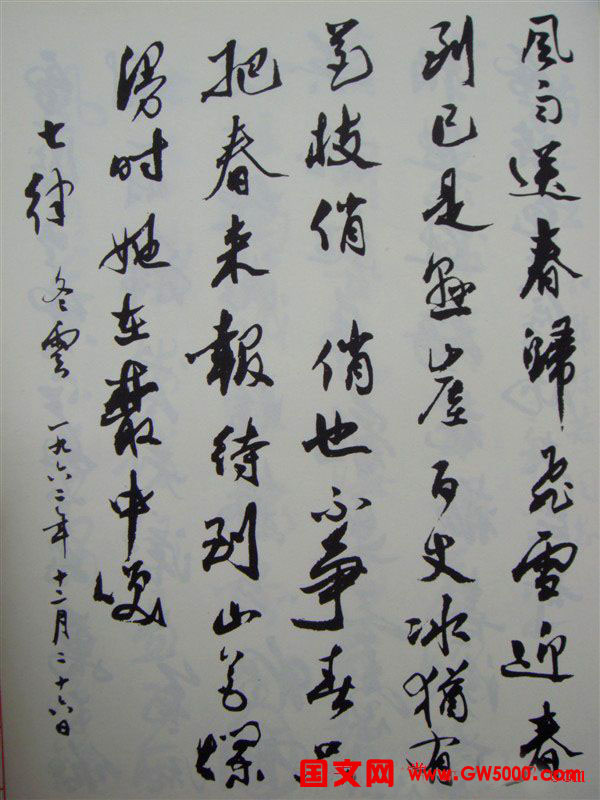 风雨送春歸飛雪迎春
到已是懸崖百丈冰猶有
花枝俏 俏也不争春只
把春来報待到山花爛
漫时她在叢中笑
七律 冬雲 一九六二年十二月二十六日
国文网 www.GW5000.com